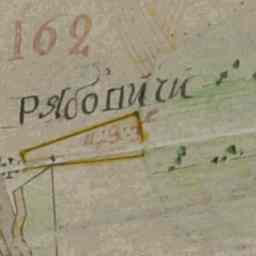 162
РЯБОПИЧИ